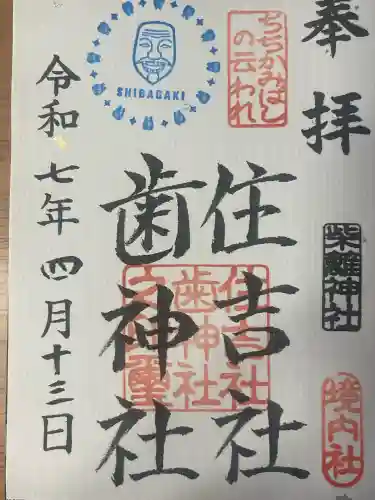 奉拝
柴籬神社
境内社
ちぢかみばし
の云われ
住吉社
歯神社
SHIBAGAKI
令和七年四月十三日